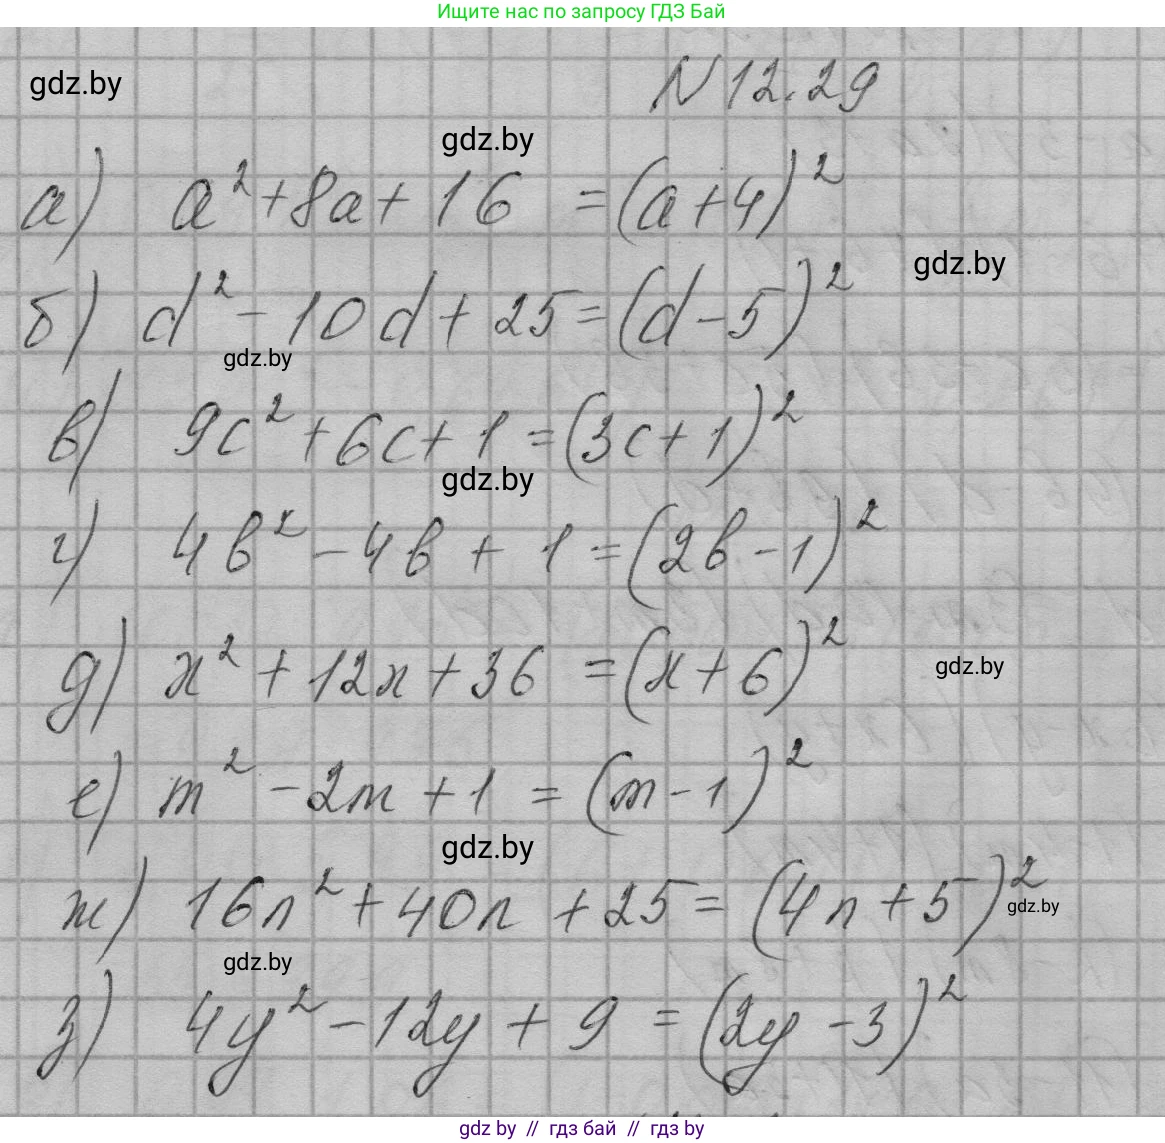 Ищите нас по запросу ГДЗ Бай
gdz.by
N 12.29
gdz.by
а) a² + 8a + 16 = (a + 4)²
gdz.by
б) d² - 10d + 25 = (d - 5)²
gdz.by
в) 9c² + 6c + 1 = (3c + 1)²
gdz.by
г) 4b² - 4b + 1 = (2b - 1)²
д) x² + 12x + 36 = (x + 6)²
gdz.by
е) m² - 2m + 1 = (m - 1)²
gdz.by
ж) 16n² + 40n + 25 = (4n + 5)²
gdz.by
gdz.by
з) 4y² - 12y + 9 = (2y - 3)²
gdz by // гдз бай // гдз by